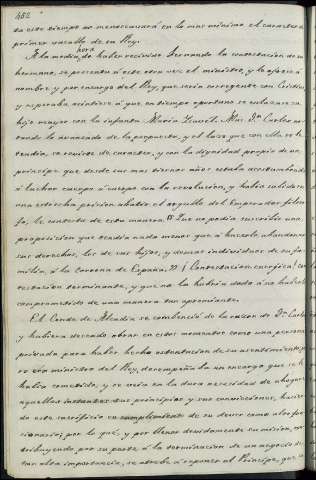 452
en este tiempo no menoscavará en lo mas mínimo el caracter de
primer vasallo de su Rey.
A la media hora de haber recivido Fernando la contestacion de su
hermano, se presentó á este otra vez el ministro, y le ofreció á
nombre, y por encargo del Rey, que seria corregente con Cristina
y esperaba asintiese á que en tiempo oportuno se enlazase su
hijo mayor con la infanta María Isavel. Mas Dn. Carlos no-
tando lo avanzado de la propuesta, y el lazo que con ella se le
tendia, se revistió de caracter, y con la dignidad propia de un
príncipe que desde sus mas tiernos años estaba acostumbrado
á luchar cuerpo á cuerpo con la revolucion, y habia sufrido en
una estrecha prision al Emperador filoso-
fo, le contestó de esta manera. "Que no podia suscribir una
proposicion que tendia nada menos que á hacerle abandonar
sus derechos, los de sus hijos, y demas individuos de su fa-
milia, á la corona de España." ¡Contestacion enérgica! con-
testacion terminante, y que no la habria dado á no haberle
comprometido de una manera tan apremiante.
El Conde de Alcudia se combenció de la razon de Dn. Carlos
y hubiera deseado obrar en estos momentos como una persona
privada para haber hecho ostentacion de su asentimiento; pe-
ro era ministro del Rey, desempeñaba un encargo que se le
habia cometido, y se veia en la dura necesidad de ahogar
aquellos instantes sus principios y sus convicciones, hacien-
do este sacrificio en cumplimiento de su dever como alto fun-
cionario; por lo que, y por llenar devidamente su mision, con-
tribuyendo por su parte á la terminacion de un negocio de
tan alta importancia, se atrevió á esponer al Príncipe, que un